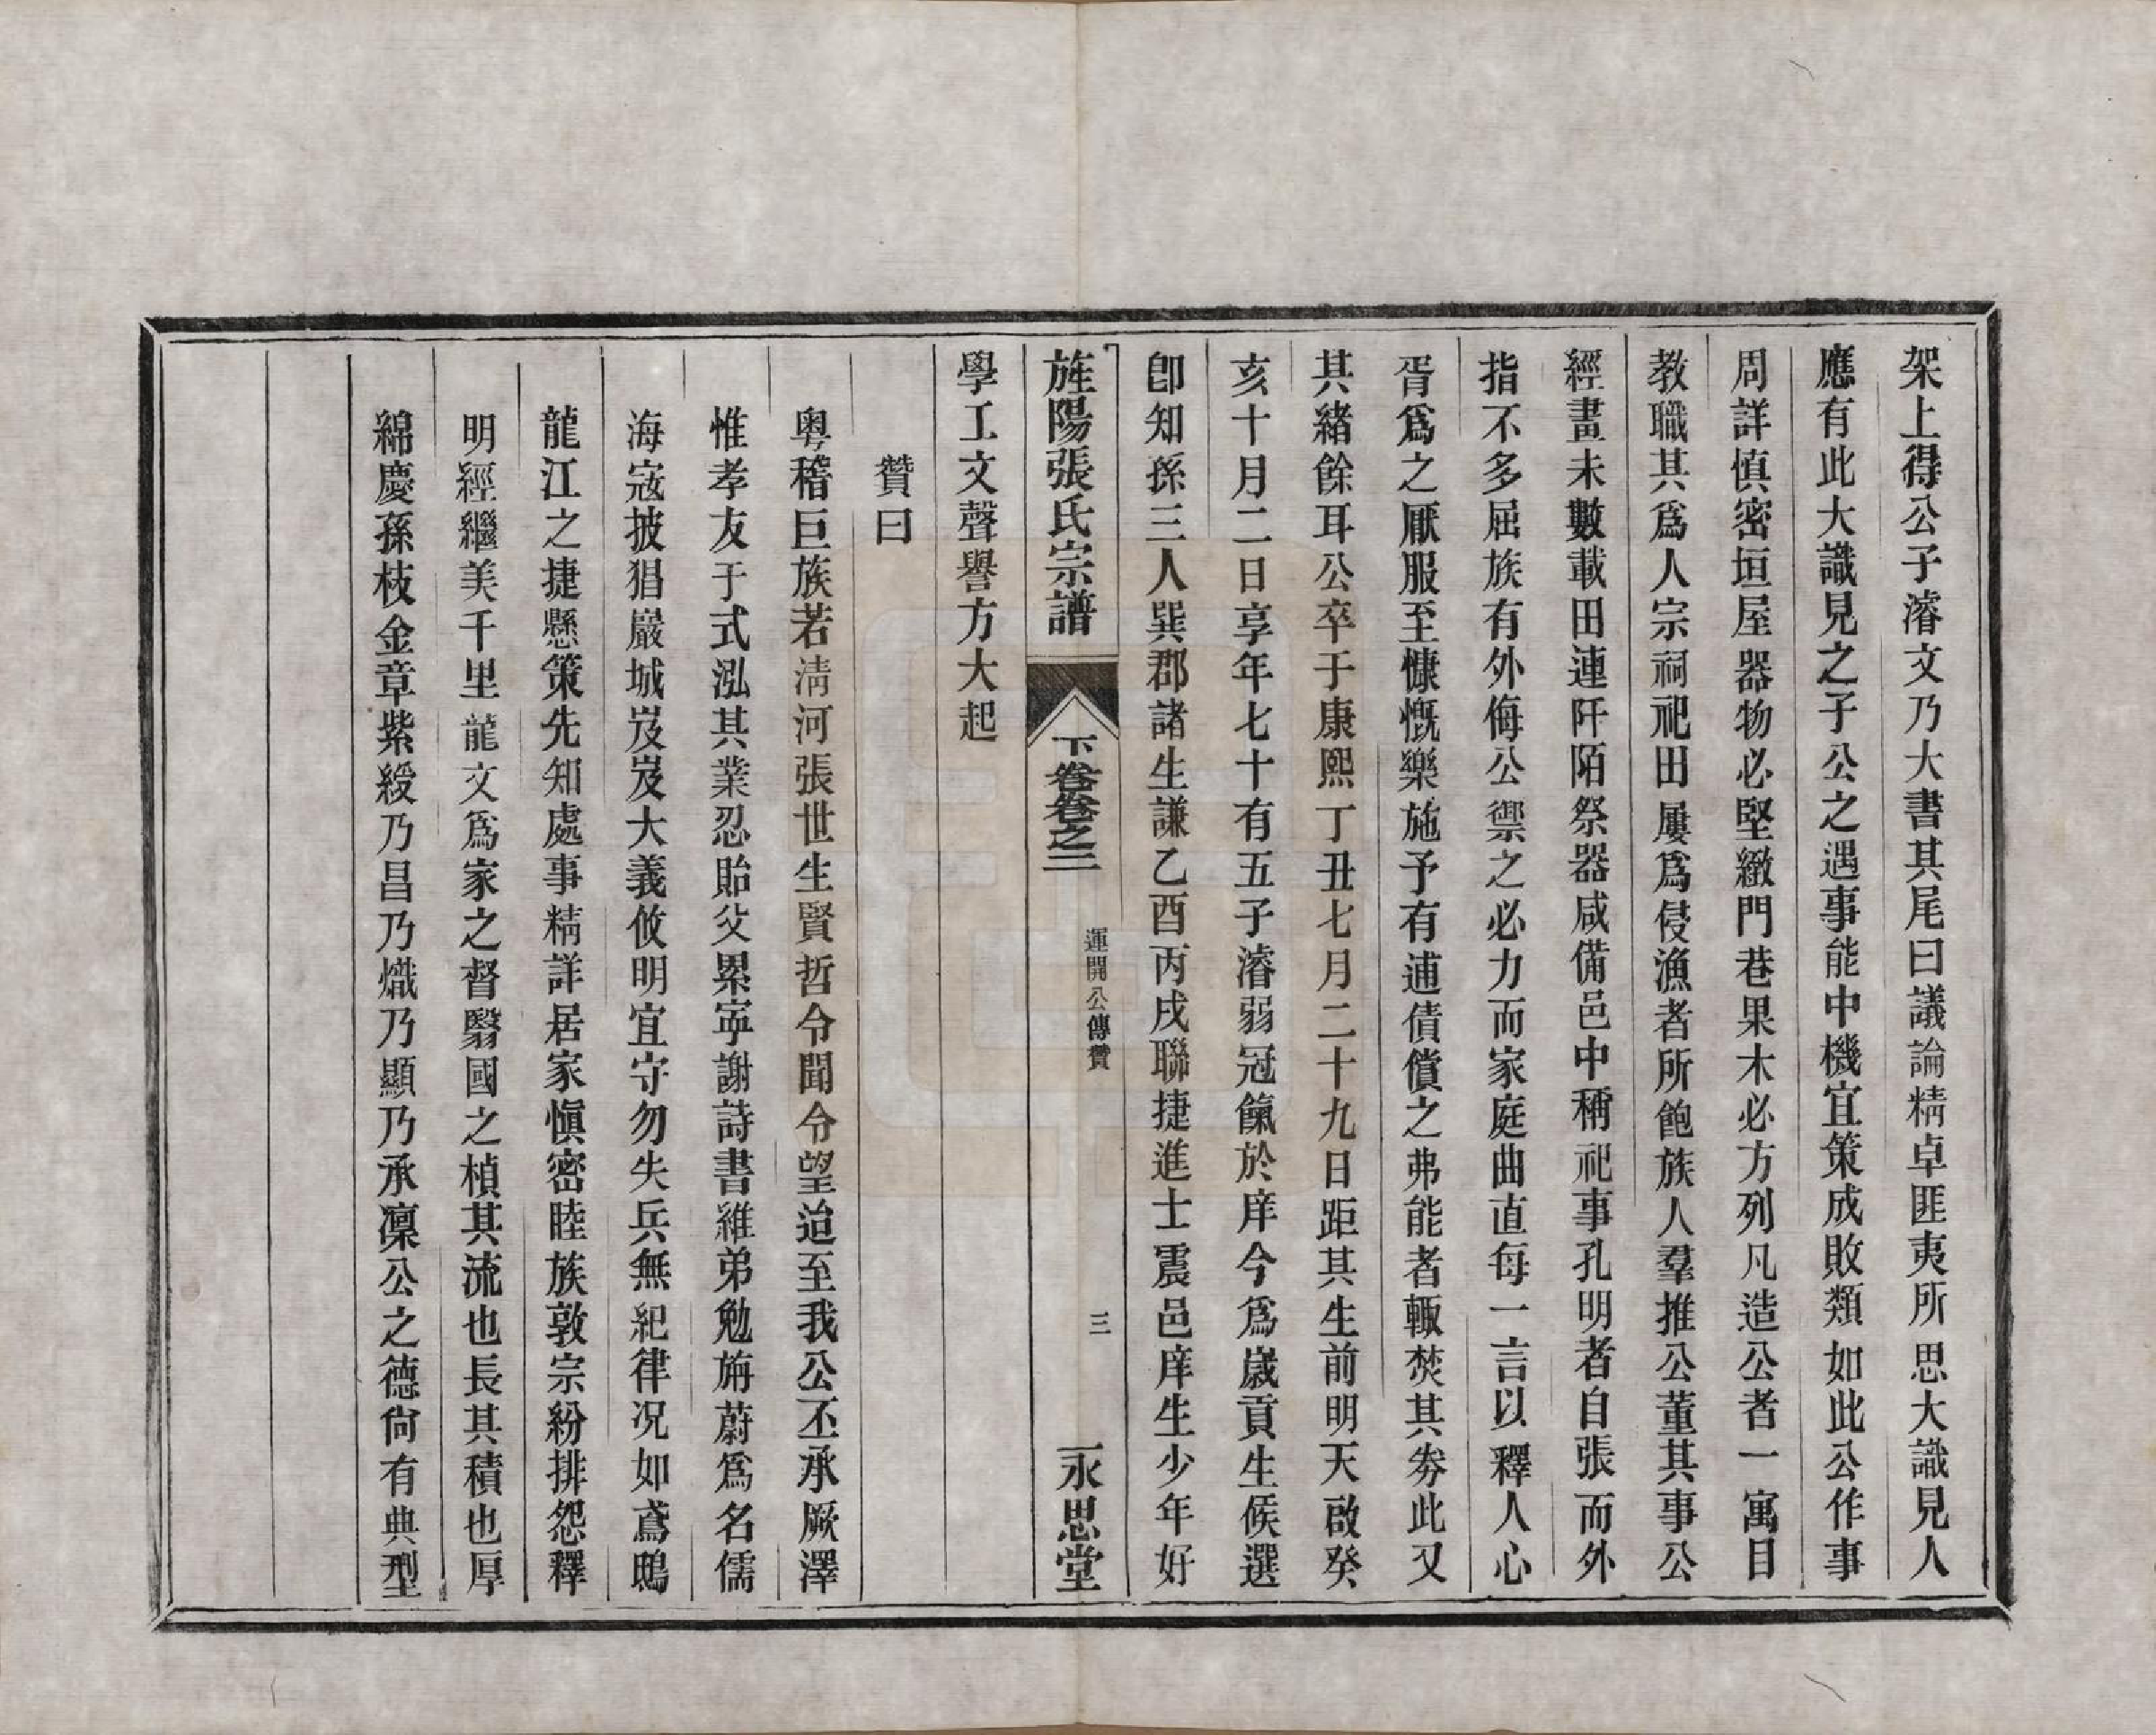 架上得公子濬文乃大書其尾曰議論精卓匪夷所思大識見人
應有此大識見之子公之遇事能中機宜策成敗類如此公作事
周詳慎密垣屋器物必堅緻門巷果木必方列凡造公者一寓目
教職其爲人宗祠祀田屢爲侵漁者所飽族人羣推公董其事公
經畫未數載田連阡陌祭器咸備邑中稱祀事孔明者自張而外
指不多屈族有外侮公禦之必力而家庭曲直每一言以釋人心
胥爲之厭服至慷慨樂施予有逋債償之弗能者輒焚其劵此又
其緒餘耳公卒于康熙丁丑七月二十九日距其生前明天啟癸
亥十月二日享年七十有五子濬弱冠餼於庠今爲歲貢生候選
卽知孫三人巽郡諸生謙乙酉丙戌聯捷進士震邑庠生少年好
旌陽張氏宗譜
下卷卷之二
運開公傳贊
三
永思堂
學工文聲譽方大起
贊曰
粤稽巨族若淸河張世生賢哲令聞令望迨至我公丕承厥澤
惟孝友于式泓其業忍貽父累寍謝詩書維弟勉旃蔚爲名儒
海寇披猖巖城岌岌大義攸明宜守勿失兵無紀律况如鳶鴟
龍江之捷懸策先知處事精詳居家愼密睦族敦宗紛排怨釋
明經繼美千里龍文爲家之督翳國之楨其流也長其積也厚
綿慶孫枝金章紫綬乃昌乃熾乃顯乃承凛公之德尙有典型